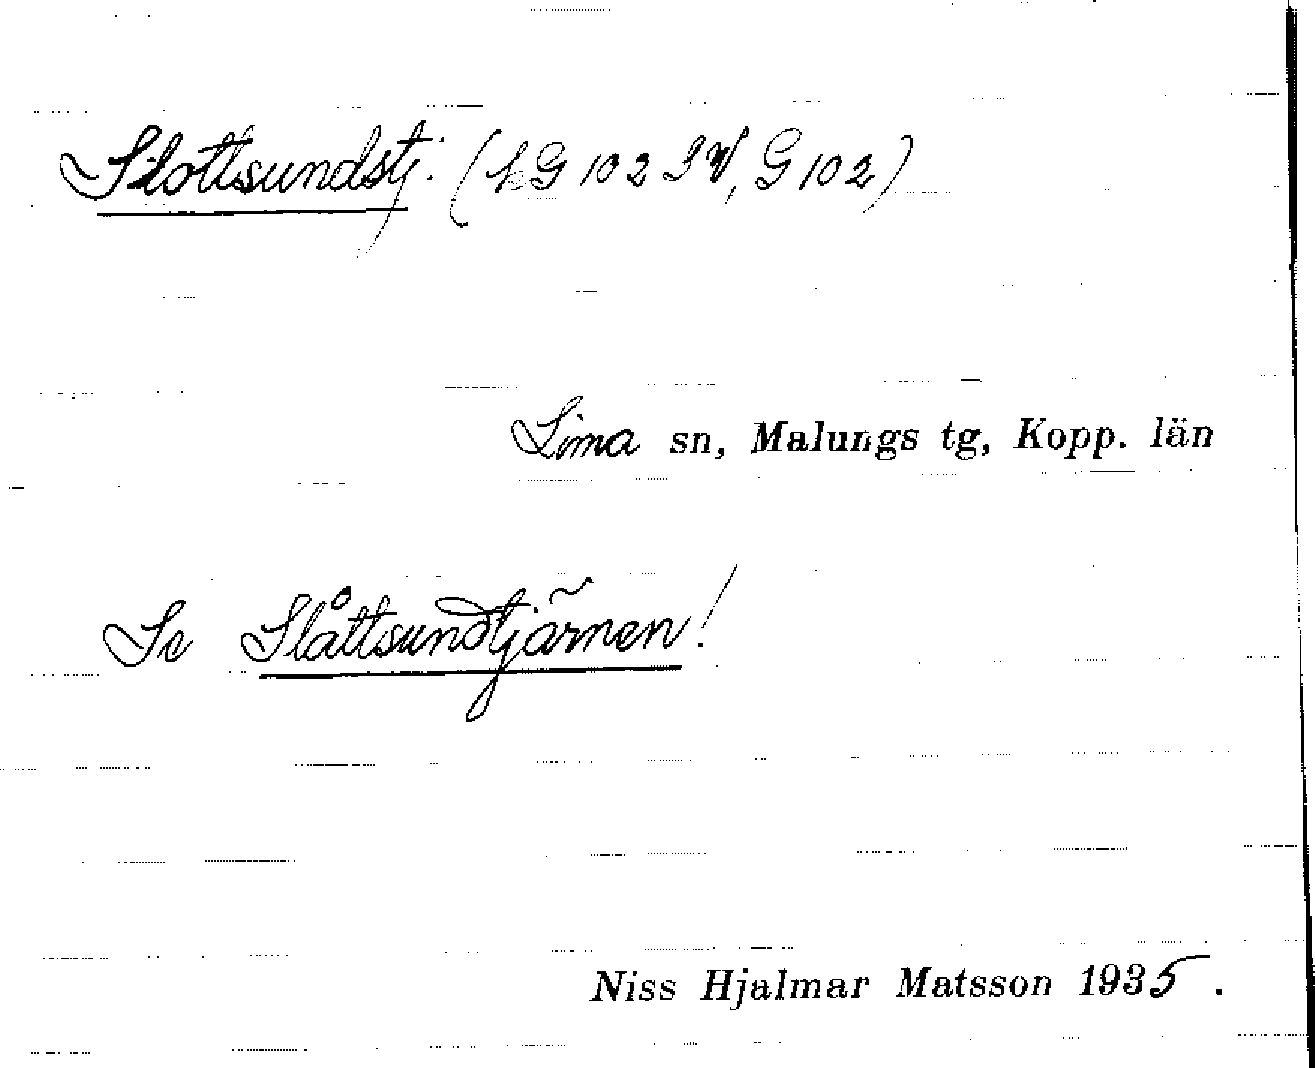 Slottsundstj. (kG 102 SV, G 102)
Lima sn, Malungs tg, Kopp. län
Se Slåttsundtjärnen!
Niss Hjalmar Matsson 1935.